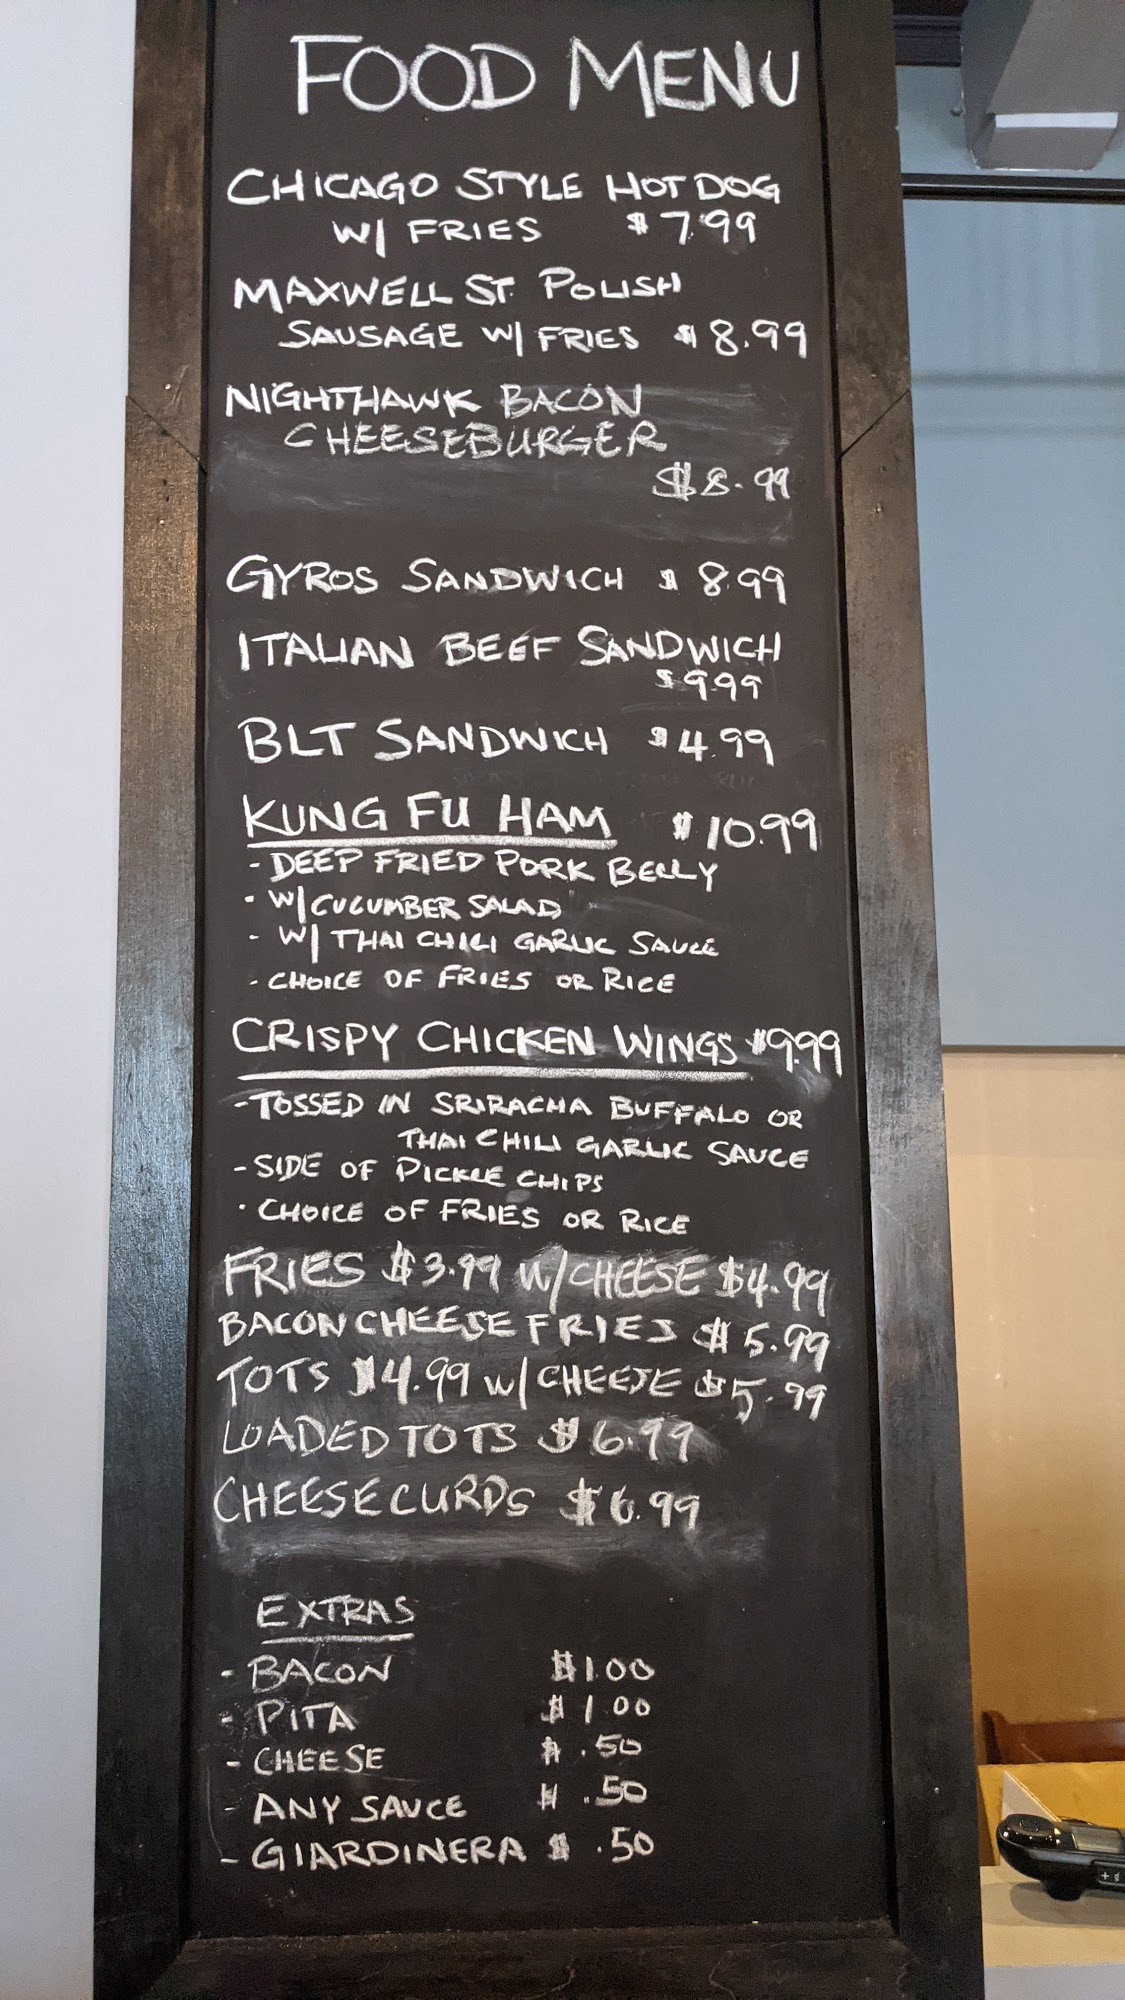 FOOD MENU
CHICAGO STYLE HOT DOG
W/ FRIES $7.99
MAXWELL ST. POLISH
SAUSAGE W/ FRIES $8.99
NIGHTHAWK BACON
CHEESEBURGER
$8.99
GYROS SANDWICH $8.99
ITALIAN BEEF SANDWICH
$9.99
BLT SANDWICH $4.99
KUNG FU HAM $10.99
- DEEP FRIED PORK BELLY
- W/ CUCUMBER SALAD
- W/ THAI CHILI GARLIC SAUCE
- CHOICE OF FRIES OR RICE
CRISPY CHICKEN WINGS $9.99
- TOSSED IN SRIRACHA BUFFALO OR
THAI CHILI GARLIC SAUCE
- SIDE OF PICKLE CHIPS
- CHOICE OF FRIES OR RICE
FRIES $3.99 W/ CHEESE $4.99
BACON CHEESE FRIES $5.99
TOTS $4.99 W/ CHEESE $5.99
LOADED TOTS $6.99
CHEESE CURDS $6.99
EXTRAS
- BACON $1.00
- PITA $1.00
- CHEESE $.50
- ANY SAUCE $.50
- GIARDINERA $.50